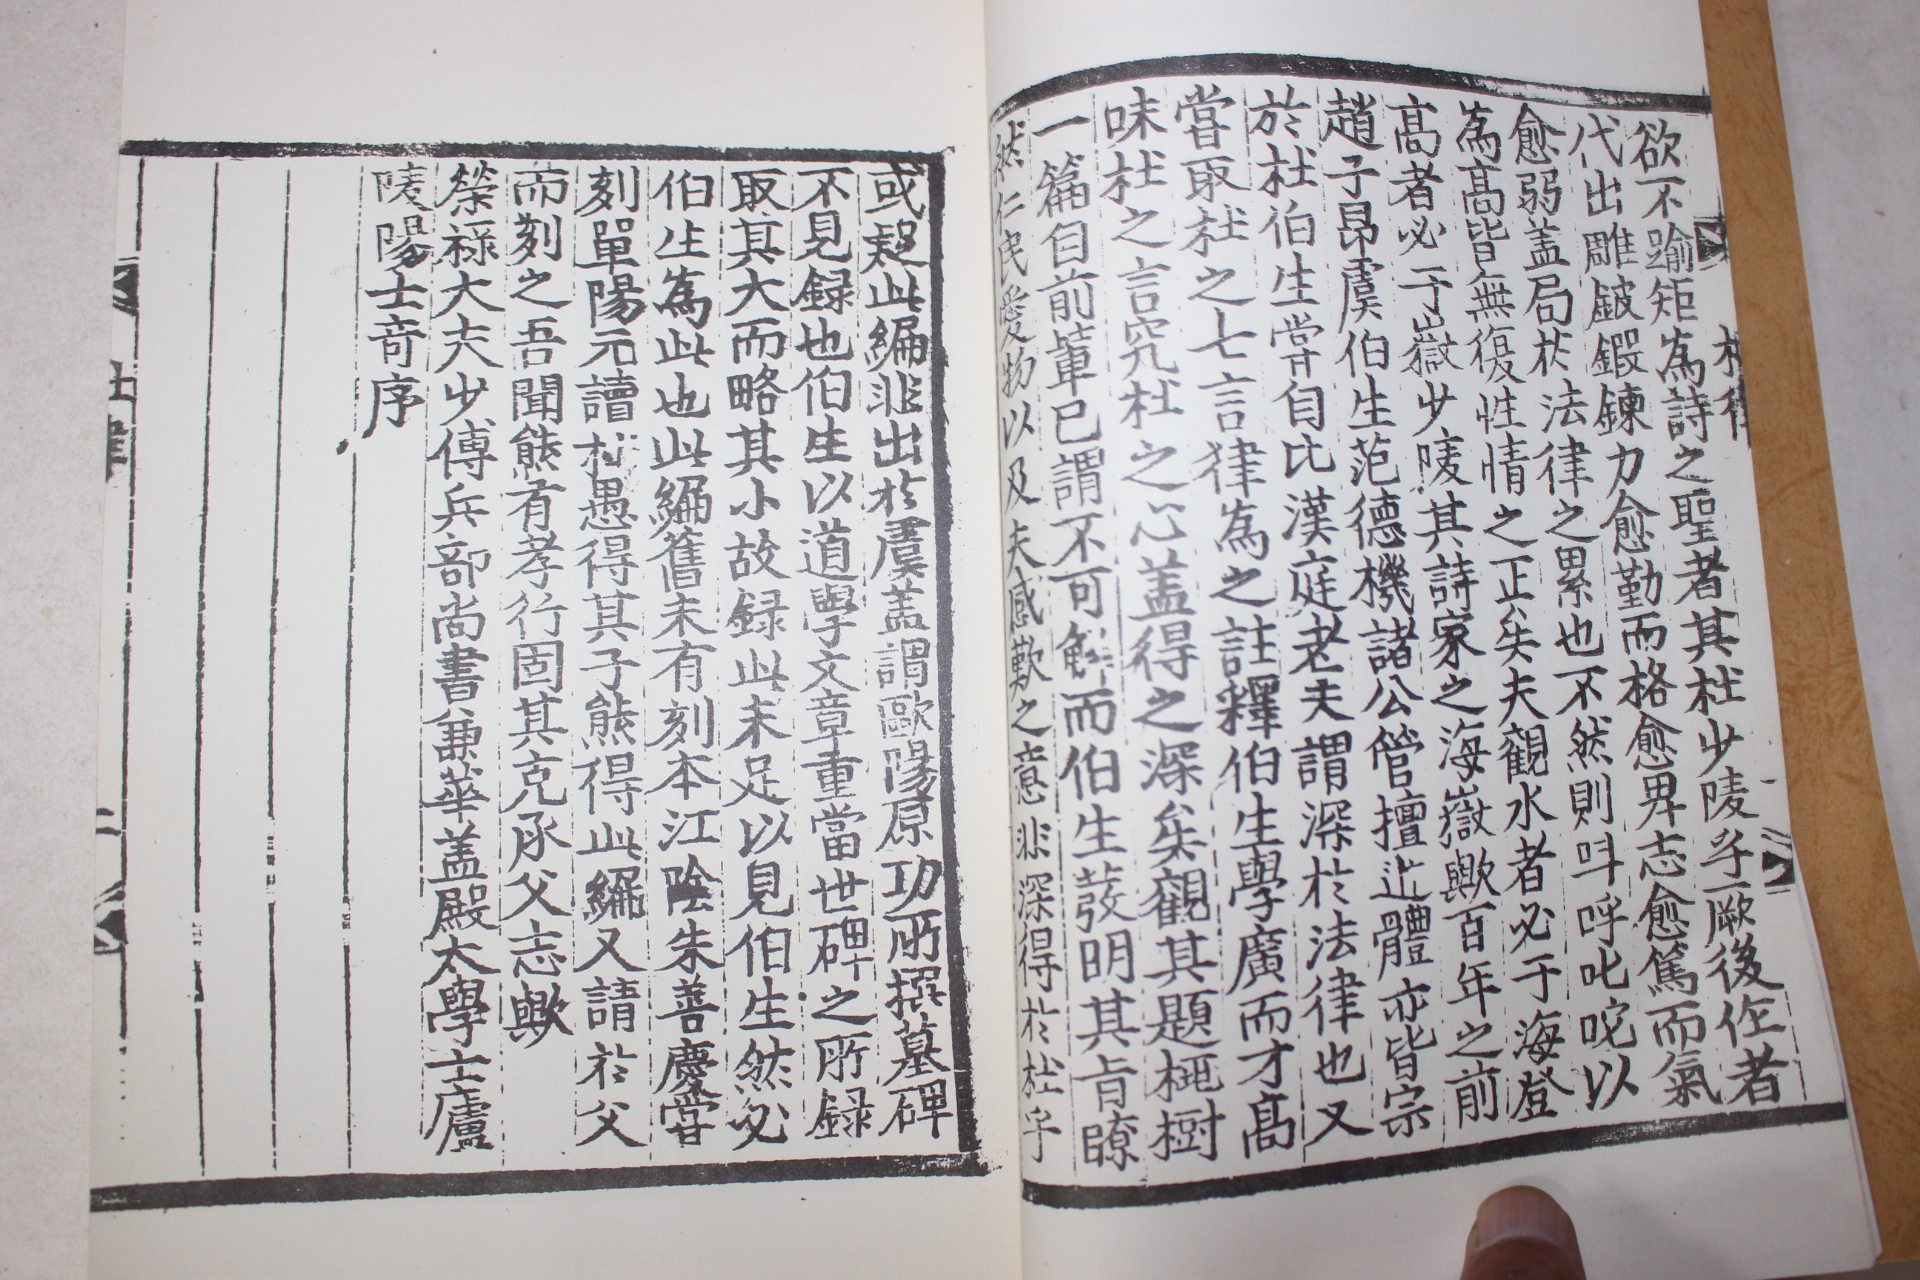 欲不踰矩為詩之聖者其杜少陵乎厥後作者
代出雕鈹鍜鍊力愈勤而格愈畀志愈篤而氣
愈弱盖局於法律之累也不然則呌呼叱咤以
為髙皆無復性情之正矣夫觀水者必于海登
髙者必于嶽少陵其詩家之海嶽歟百年之前
趙子昂虞伯生范德機諸公皆擅近體亦皆宗
於杜伯生甞自比漢庭老夫謂深於法律也又
嘗取杜之七言律為之註釋伯生學廣而才髙
味杜之言究杜之心盖得之深矣觀其題桃樹
一篇自前軰已謂不可觧而伯生發明其肯瞭
然仁民愛物以及夫感歎之意非深得於杜乎
或疑此編非出於虞盖謂歐陽原功所撰墓碑
不見録也伯生以道學文章重當世碑之所録
取其大而略其小故録此未足以見伯生然必
伯生為此也此編舊未有刻本江陰朱善慶甞
刻單陽元讀杜愚得其子熊得此編又請於父
而刻之吾聞熊有孝行固其克承父志歟
榮祿大夫少傅兵部尚書兼華盖殿大學士廬
陵陽士竒序